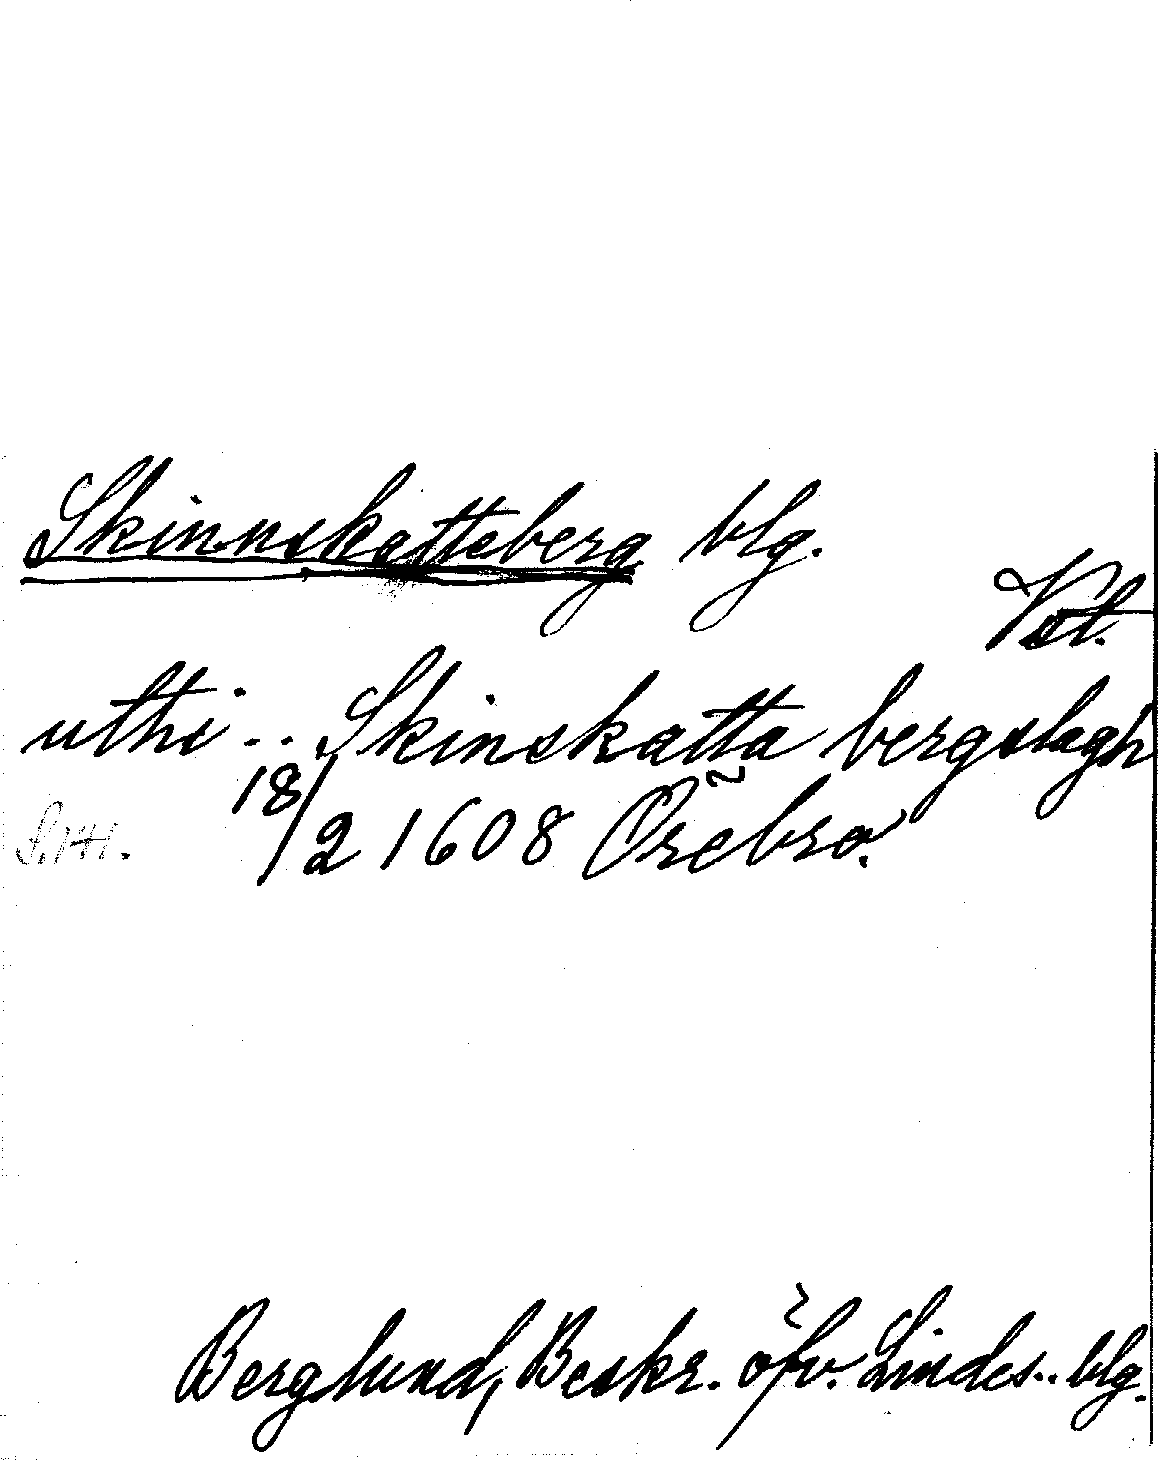 Skinnskatteberg blg.
Vstl.
uthi .. Skinskatta bergslagh
S. 141. 18/2 1608 Örebro.
Berglund, Beskr. öfv. Lindes.. blg.